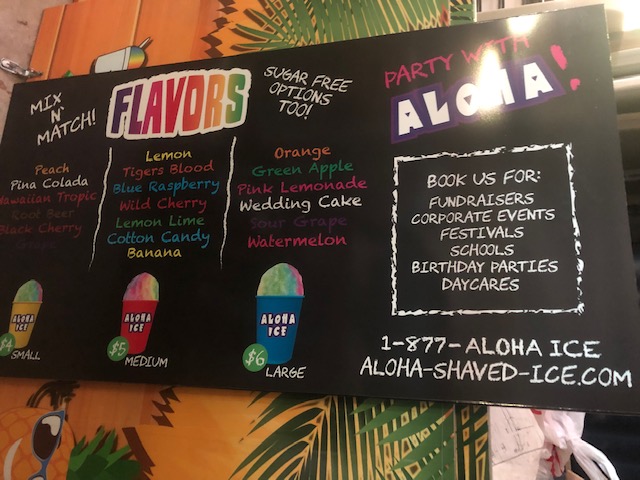 MIX
N'
MATCH!
FLAVORS
SUGAR FREE
OPTIONS
TOO!
Peach
Pina Colada
Hawaiian Tropic
Root Beer
Black Cherry
Grape
Lemon
Tigers Blood
Blue Raspberry
Wild Cherry
Lemon Lime
Cotton Candy
Banana
Orange
Green Apple
Pink Lemonade
Wedding Cake
Sour Grape
Watermelon
ALOHA
ICE
$4
SMALL
ALOHA
ICE
$5
MEDIUM
ALOHA
ICE
$6
LARGE
PARTY WITH
ALOHA!
BOOK US FOR:
FUNDRAISERS
CORPORATE EVENTS
FESTIVALS
SCHOOLS
BIRTHDAY PARTIES
DAYCARES
1-877-ALOHA ICE
ALOHA-SHAVED-ICE.COM